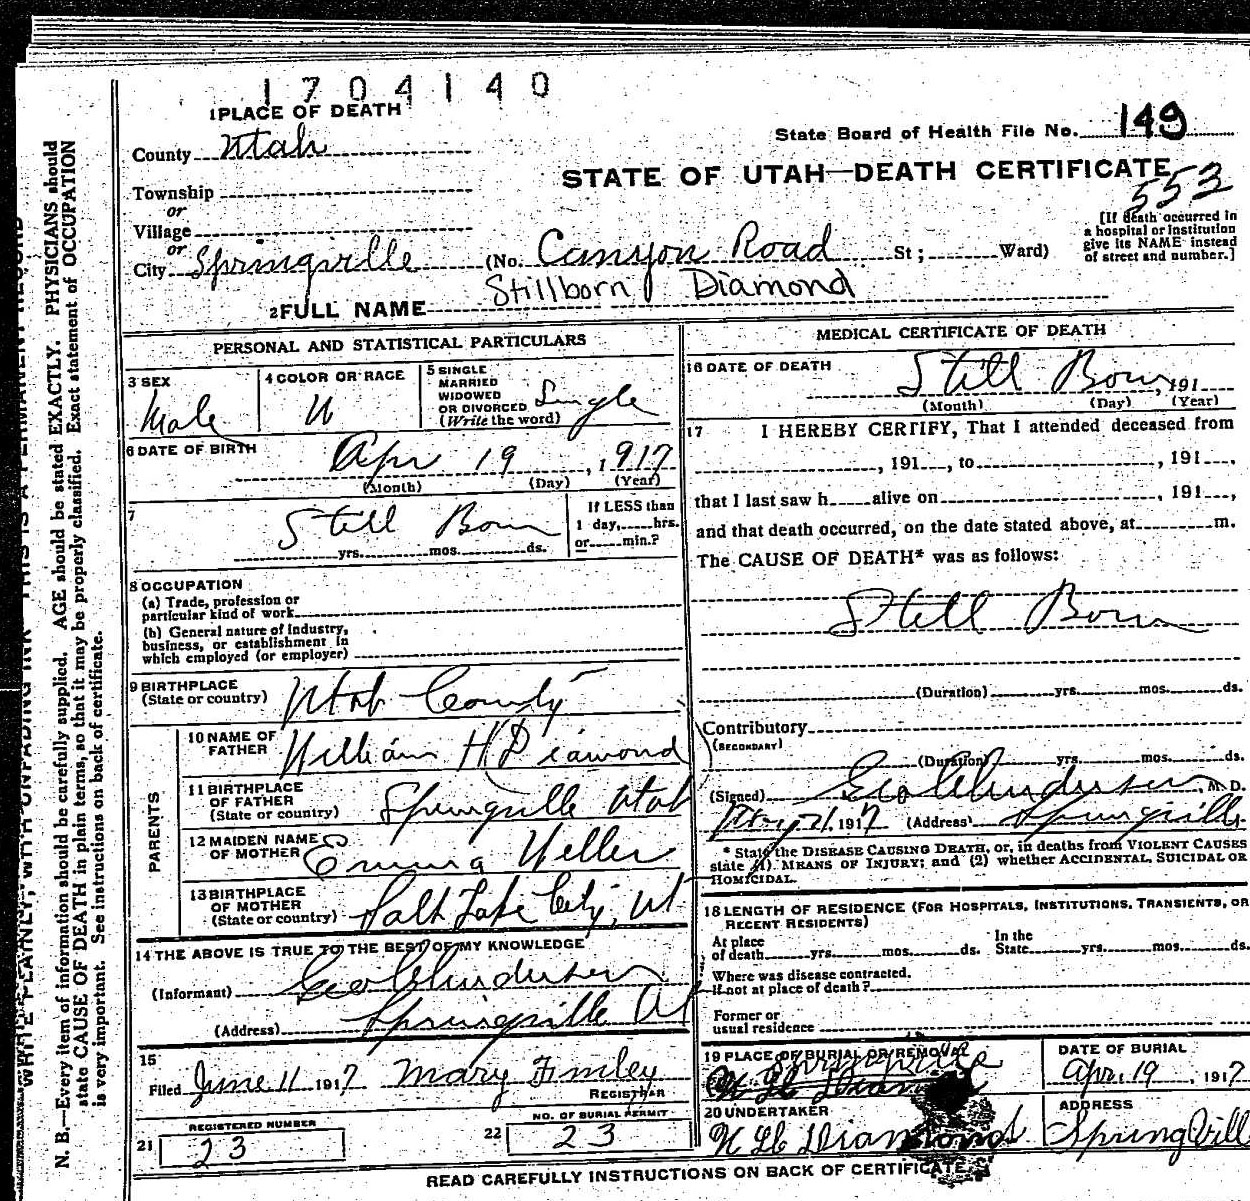 1704140
1 PLACE OF DEATH
State Board of Health File No. 149
County Utah
STATE OF UTAH—DEATH CERTIFICATE
553
Township
or
Village
or
City Springville (No. Canyon Road St; Ward)
[If death occurred in
a hospital or institution
give its NAME instead
of street and number.]
2 FULL NAME Stillborn Diamond
PERSONAL AND STATISTICAL PARTICULARS
3 SEX
Male
4 COLOR OR RACE
W
5 SINGLE
MARRIED
WIDOWED
OR DIVORCED
(Write the word)
Single
6 DATE OF BIRTH
Apr 19, 1917
(Month) (Day) (Year)
7
Still Born
yrs. mos. ds.
If LESS than
1 day, hrs.
or min.?
8 OCCUPATION
(a) Trade, profession or
particular kind of work
(b) General nature of industry,
business, or establishment in
which employed (or employer)
9 BIRTHPLACE
(State or country) Utah County
PARENTS
10 NAME OF
FATHER William H Diamond
11 BIRTHPLACE
OF FATHER
(State or country) Springville Utah
12 MAIDEN NAME
OF MOTHER Emma Weller
13 BIRTHPLACE
OF MOTHER
(State or country) Salt Lake City, Ut
14 THE ABOVE IS TRUE TO THE BEST OF MY KNOWLEDGE
(Informant) Geo
(Address) Springville Ut
15
Filed June 11 1917 Mary Finley
REGISTRAR
21 REGISTERED NUMBER
23
22 NO. OF BURIAL PERMIT
23
MEDICAL CERTIFICATE OF DEATH
16 DATE OF DEATH
Still Born, 191
(Month) (Day) (Year)
17 I HEREBY CERTIFY, That I attended deceased from
, 191 , to , 191 ,
that I last saw h alive on , 191 ,
and that death occurred, on the date stated above, at m.
The CAUSE OF DEATH* was as follows:
Still Born
(Duration) yrs. mos. ds.
Contributory
(SECONDARY)
(Duration) yrs. mos. ds.
(Signed) Geo , M. D.
21, 1917 (Address) Springville
* State the DISEASE CAUSING DEATH, or, in deaths from VIOLENT CAUSES
state (1) MEANS OF INJURY; and (2) whether ACCIDENTAL, SUICIDAL OR
HOMICIDAL.
18 LENGTH OF RESIDENCE (FOR HOSPITALS, INSTITUTIONS, TRANSIENTS, OR
RECENT RESIDENTS)
At place
of death yrs. mos. ds.
In the
State yrs. mos. ds.
Where was disease contracted.
if not at place of death?
Former or
usual residence
19 PLACE OF BURIAL OR REMOVAL
Springville
DATE OF BURIAL
Apr. 19, 1917
20 UNDERTAKER
W H Diamond
ADDRESS
Springvill
READ CAREFULLY INSTRUCTIONS ON BACK OF CERTIFICATE.
WRITE PLAINLY, WITH UNFADING INK—THIS IS A PERMANENT RECORD
N. B.—Every item of information should be carefully supplied. AGE should be stated EXACTLY. PHYSICIANS should
state CAUSE OF DEATH in plain terms, so that it may be properly classified. Exact statement of OCCUPATION
is very important. See instructions on back of certificate.